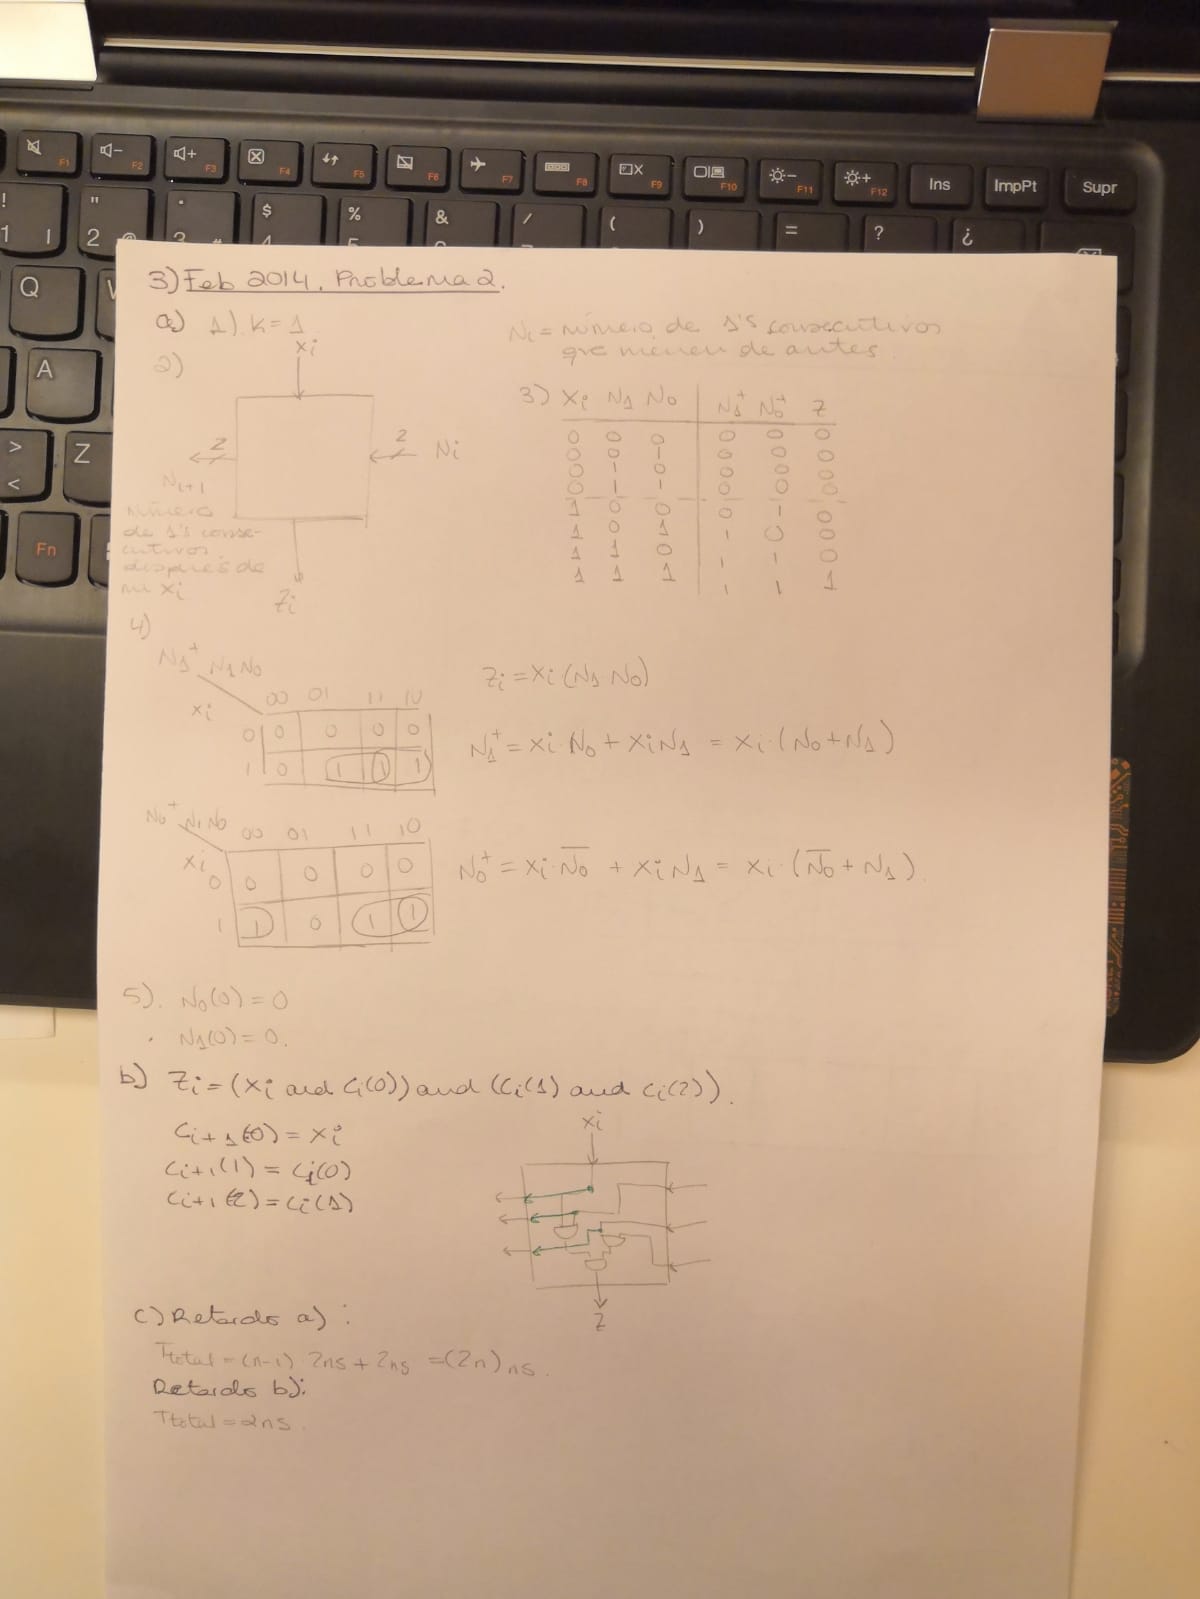 F1 F2 F3 F4 F5 F6 F7 F8 F9 F10 F11 F12 Ins ImpPt Supr
! 1 " 2 · 3 # $ 4 % 5 & / ( ) = ? ¿
Q
A
> < Z
Fn
3) Feb 2014. Problema 2.
a) 1). K = 1
Ni = número de 1's consecutivos
que vienen de antes.
2)
xi
2 Ni
2
Ni+1
número
de 1's conse-
cutivos
después de
mi xi
Zi
3) Xi N1 N0 N1+ N0+ Z
0 0 0 0 0 0
0 0 1 0 0 0
0 1 0 0 0 0
0 1 1 0 0 0
1 0 0 0 1 0
1 0 1 1 0 0
1 1 0 1 1 0
1 1 1 1 1 1
4)
N1+ N1 N0
xi 00 01 11 10
0 0 0 0 0
1 0 1 1 1
Zi = xi (N1 N0)
N1+ = xi · N0 + xi N1 = xi · (N0 + N1)
N0+ N1 N0 00 01 11 10
xi
0 0 0 0 0
1 1 0 1 1
N0+ = xi · N̅0̅ + xi N1 = xi · (N̅0̅ + N1).
5). N0(0) = 0
· N1(0) = 0.
b) Zi = (xi and ci(0)) and (ci(1) and ci(2)).
ci+1(0) = xi
ci+1(1) = ci(0)
ci+1(2) = ci(1)
xi
Z
c) Retardo a) :
Ttotal = (n-1) · 2ns + 2ns = (2n) ns.
Retardo b):
Ttotal = 2ns.